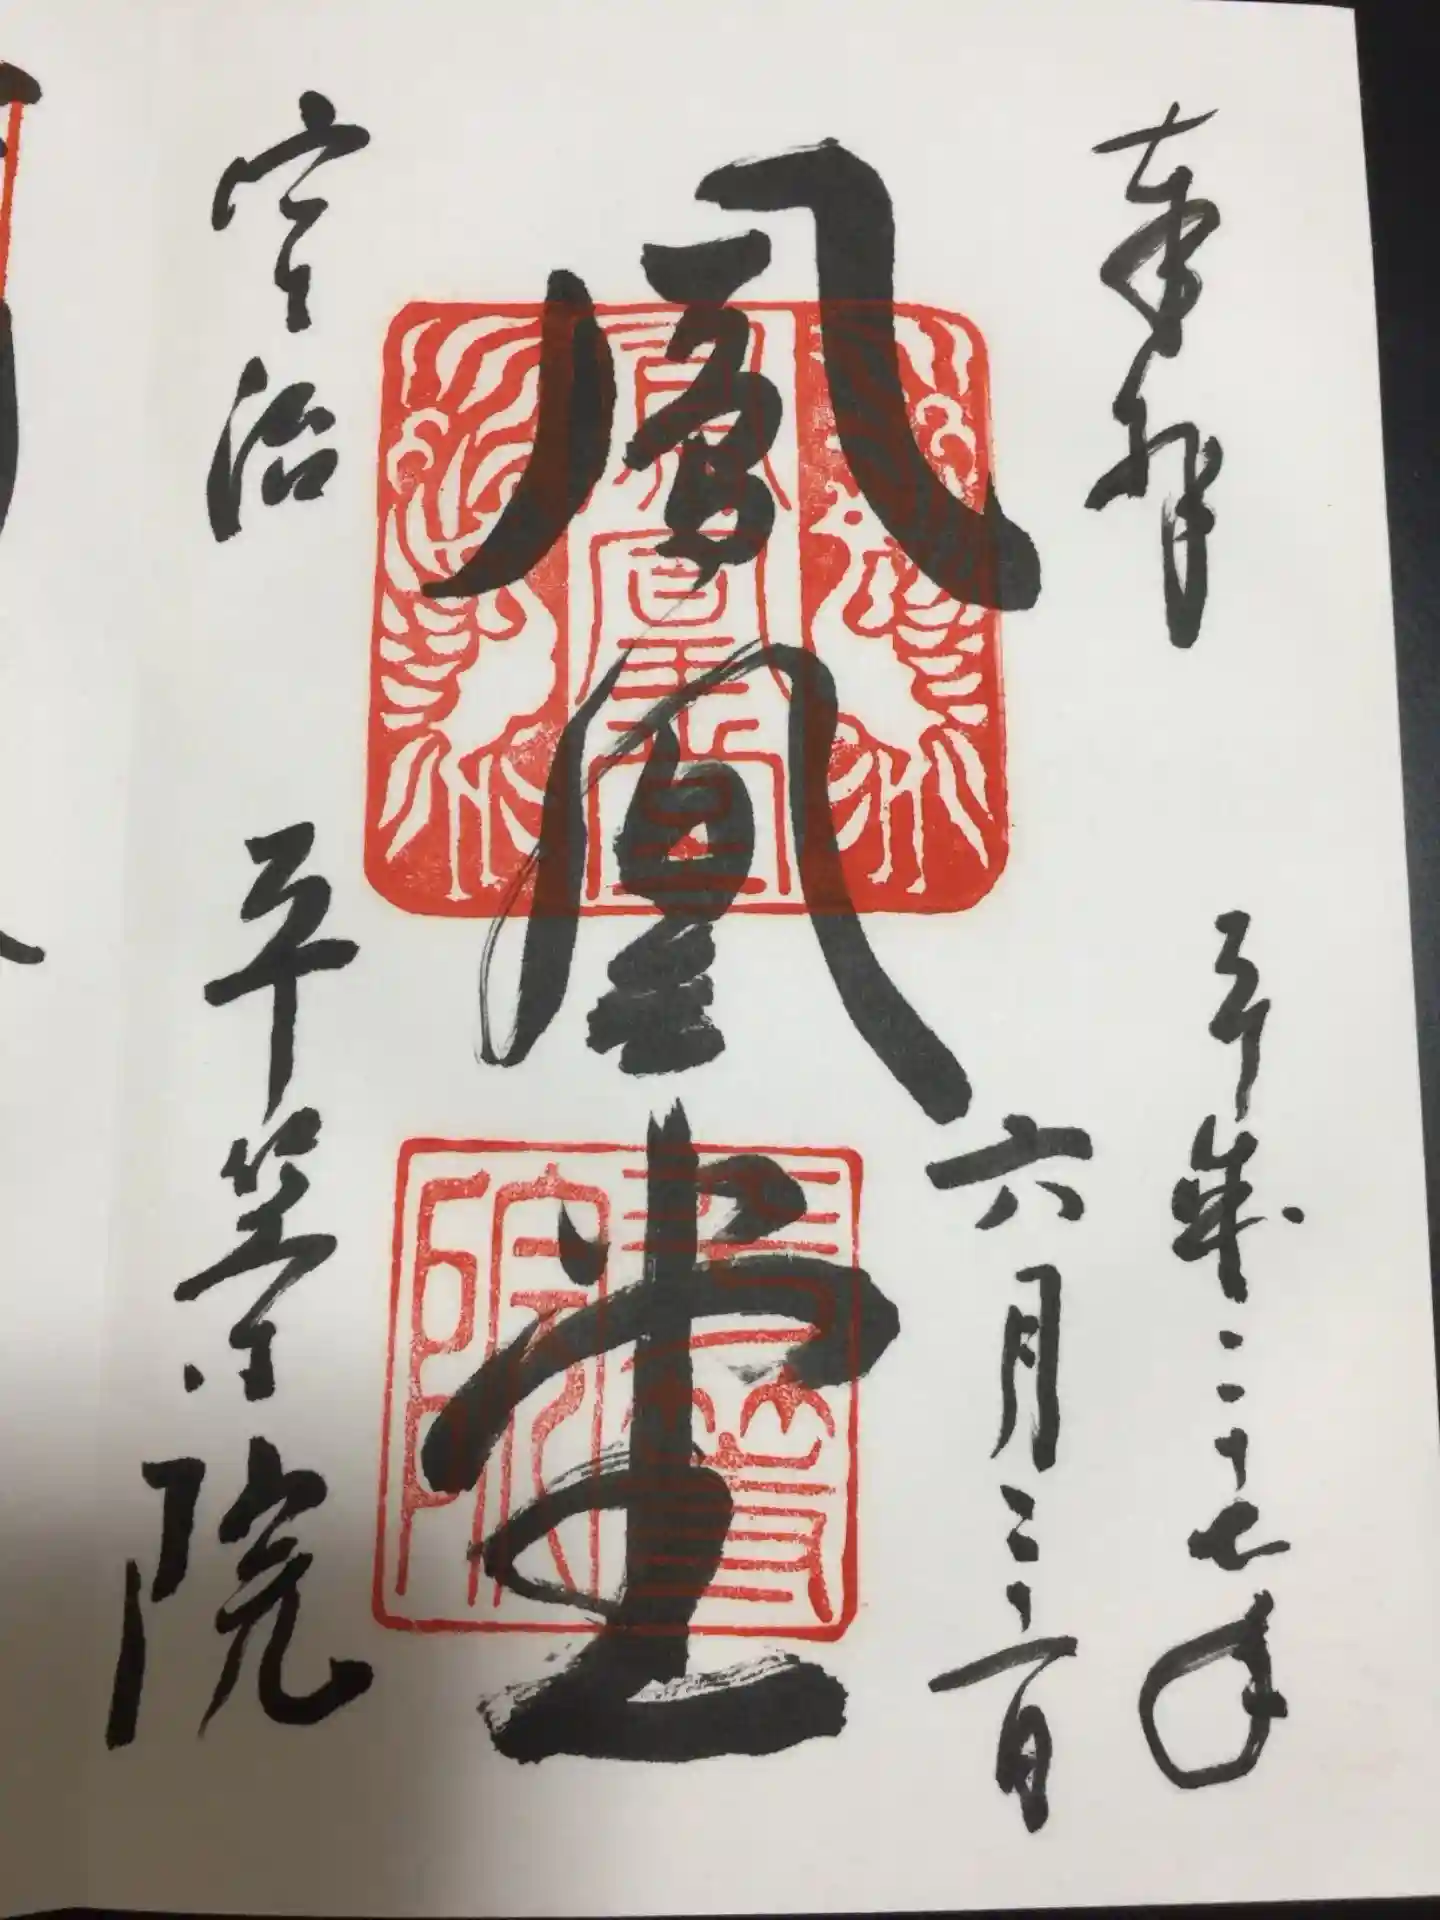 奉拝
平成二十七年
六月二十一日
鳳凰堂
宇治
平等院
鳳凰堂